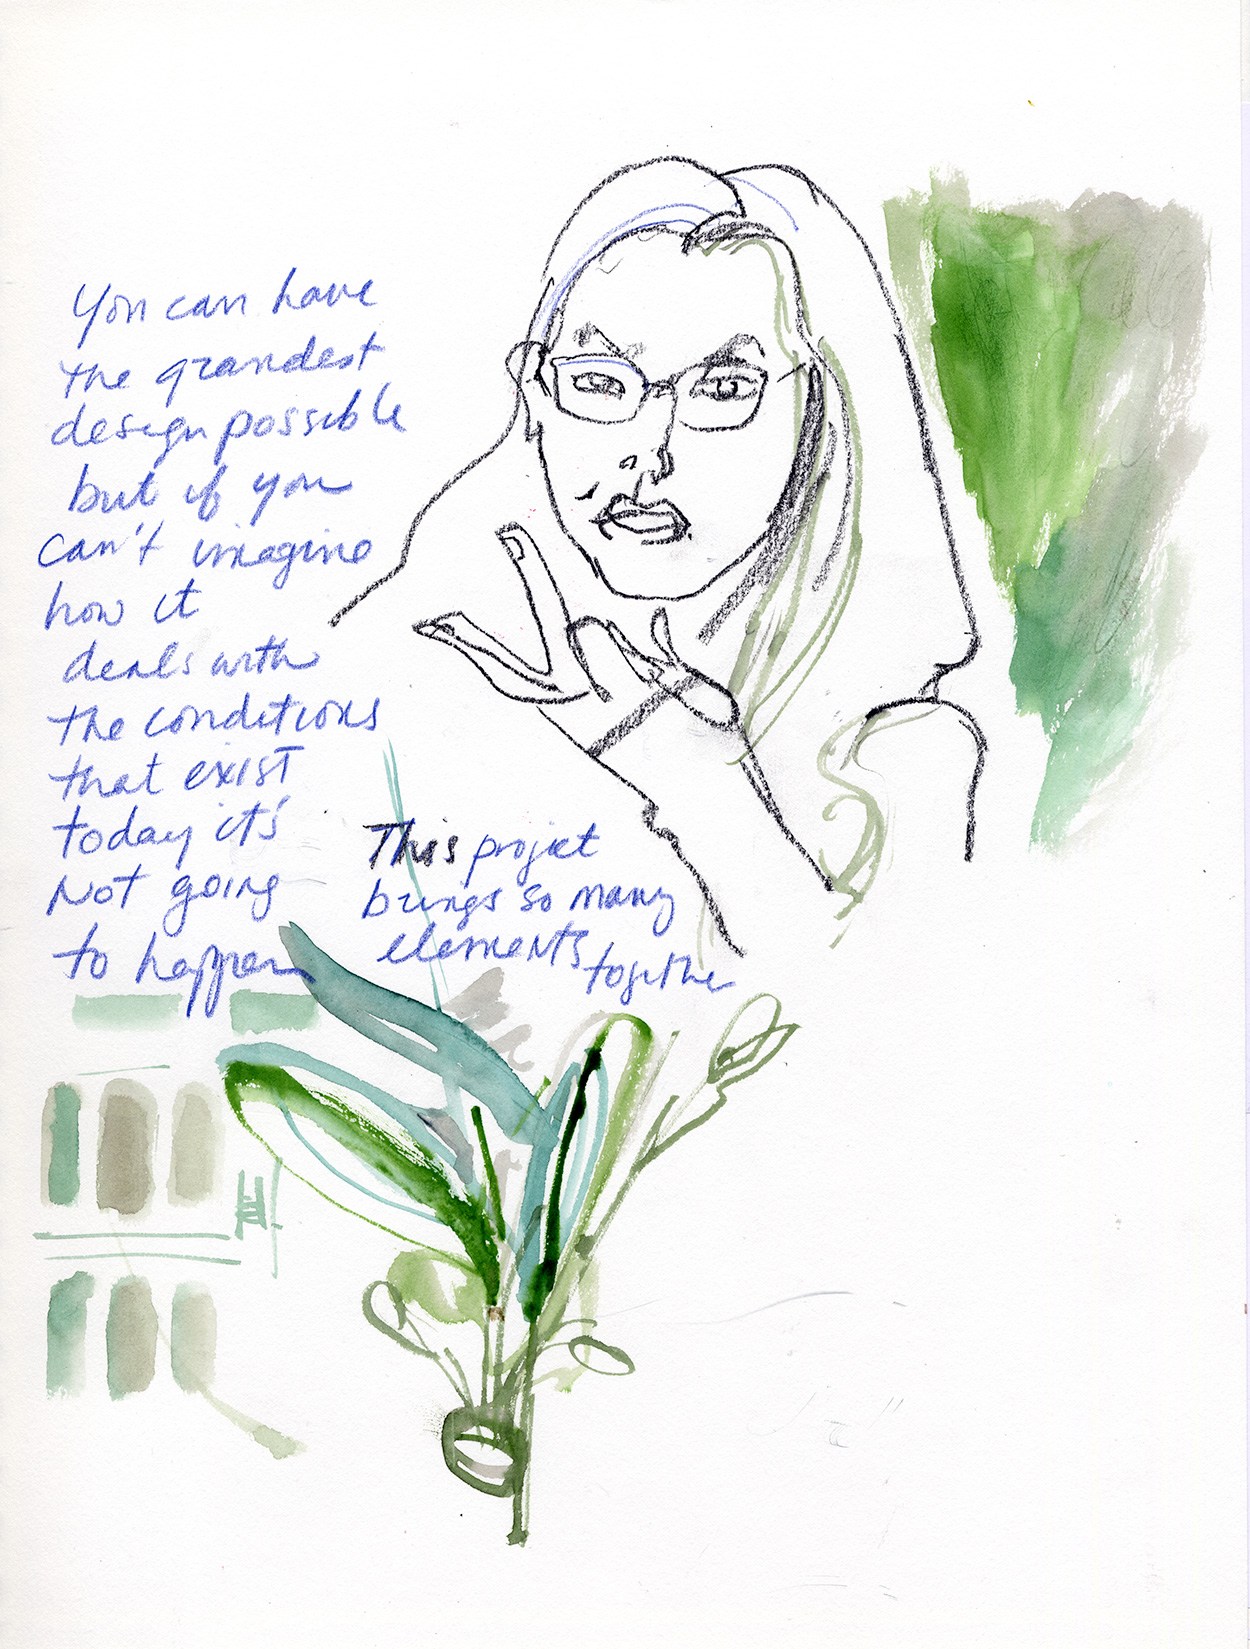 You can have
the grandest
design possible
but if you
can't imagine
how it
deals with
the conditions
that exist
today it's
Not going
to happen
This project
brings so many
elements
together